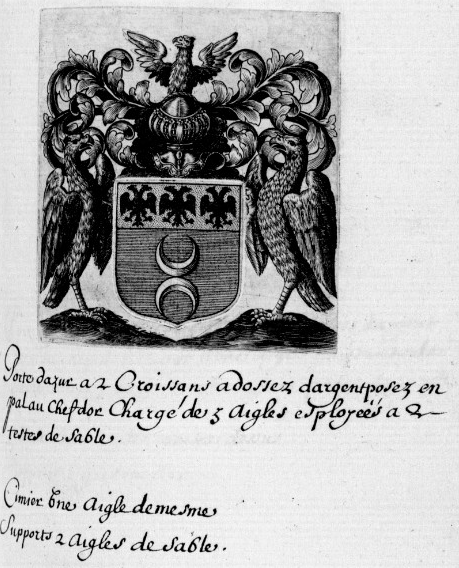 Porte dazur a 2 Croissans adossez dargent posez en
pal au Chef dor Chargé de 3 Aigles esployeés a 2
testes de sable.
Cimier Vne Aigle de mesme
Supports 2 Aigles de sable.